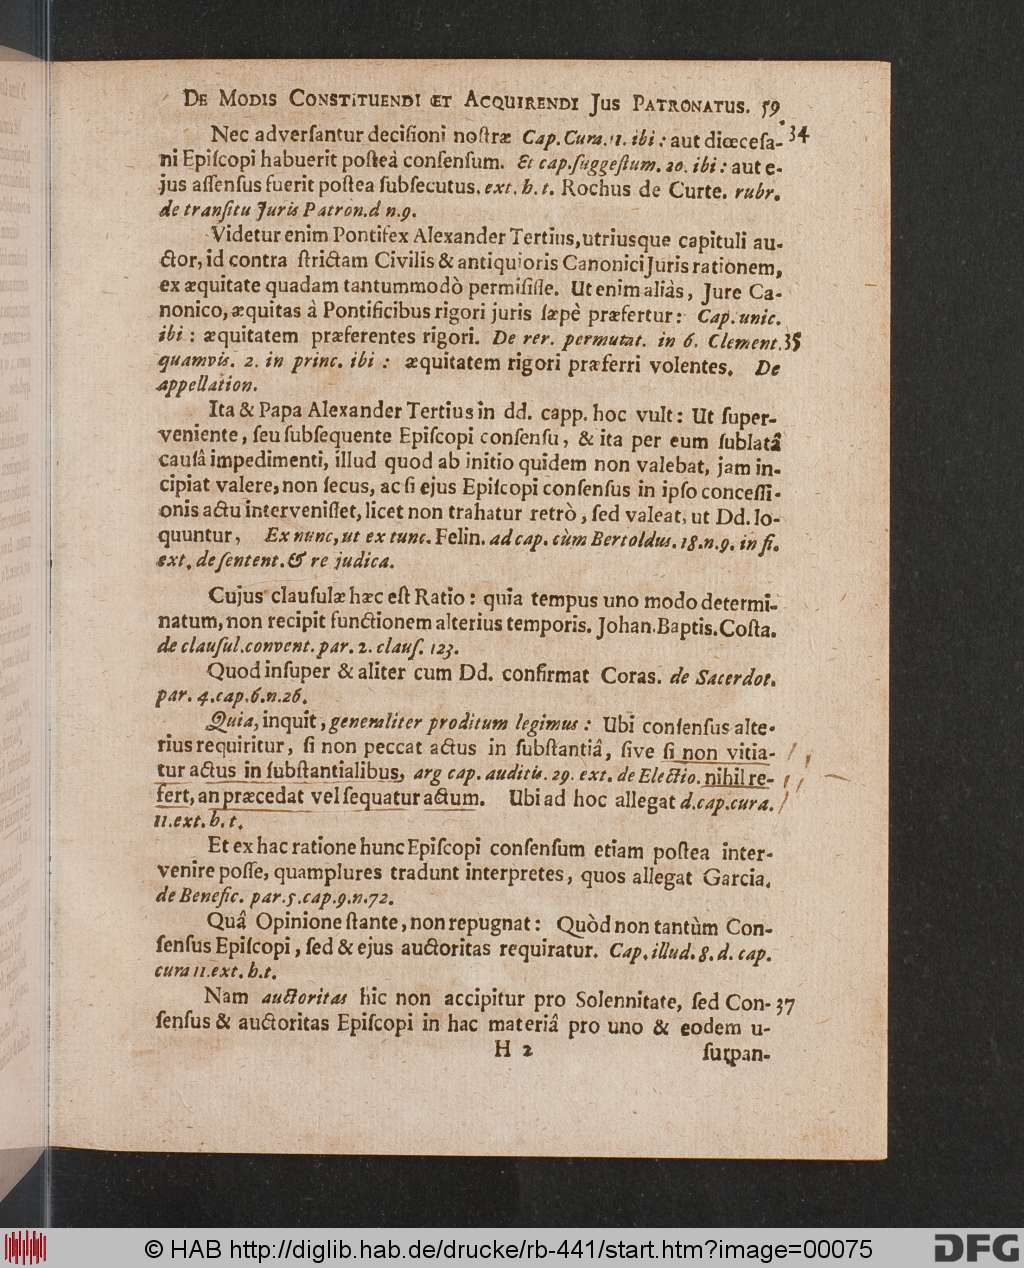 De Modis Constituendi et Acquirendi Jus Patronatus. 59
Nec adverſantur deciſioni noſtræ Cap. Cura. 11. ibi : aut diœceſa- 34
ni Epiſcopi habuerit poſteà conſenſum. Et cap. ſuggeſtum. 20. ibi : aut e-
jus aſſenſus fuerit poſtea ſubſecutus. ext. h. t. Rochus de Curte. rubr.
de tranſitu Juris Patron. d n. 9.
Videtur enim Pontifex Alexander Tertius, utriusque capituli au-
ctor, id contra ſtrictam Civilis & antiquioris Canonici Juris rationem,
ex æquitate quadam tantummodò permiſiſſe. Ut enim aliàs, Jure Ca-
nonico, æquitas à Pontificibus rigori juris ſæpè præfertur : Cap. unic.
ibi : æquitatem præferentes rigori. De rer. permutat. in 6. Clement. 35
quamvis. 2. in princ. ibi : æquitatem rigori præferri volentes. De
appellation.
Ita & Papa Alexander Tertius in dd. capp. hoc vult : Ut ſuper-
veniente, ſeu ſubſequente Epiſcopi conſenſu, & ita per eum ſublatâ
cauſâ impedimenti, illud quod ab initio quidem non valebat, jam in-
cipiat valere, non ſecus, ac ſi ejus Epiſcopi conſenſus in ipſo conceſſi-
onis actu interveniſſet, licet non trahatur retrò, ſed valeat, ut Dd. lo-
quuntur, Ex nunc, ut ex tunc. Felin. ad cap. cùm Bertoldus. 18. n. 9. in fi.
ext. de ſentent. & re judica.
Cujus clauſulæ hæc eſt Ratio : quia tempus uno modo determi-
natum, non recipit functionem alterius temporis. Johan. Baptis. Coſta.
de clauſul. convent. par. 2. clauſ. 123.
Quod inſuper & aliter cum Dd. confirmat Coras. de Sacerdot.
par. 4. cap. 6. n. 26.
Quia, inquit, generaliter proditum legimus : Ubi conſenſus alte-
rius requiritur, ſi non peccat actus in ſubſtantiâ, ſive ſi non vitia-
tur actus in ſubſtantialibus, arg cap. auditis. 29. ext. de Electio. nihil re-
fert, an præcedat vel ſequatur actum. Ubi ad hoc allegat d. cap. cura.
11. ext. h. t.
Et ex hac ratione hunc Epiſcopi conſenſum etiam poſtea inter-
venire poſſe, quamplures tradunt interpretes, quos allegat Garcia.
de Benefic. par. 5. cap. 9. n. 72.
Quâ Opinione ſtante, non repugnat : Quòd non tantùm Con-
ſenſus Epiſcopi, ſed & ejus auctoritas requiratur. Cap. illud. 8. d. cap.
cura 11. ext. h. t.
Nam auctoritas hic non accipitur pro Solennitate, ſed Con- 37
ſenſus & auctoritas Epiſcopi in hac materiâ pro uno & eodem u-
H 2 ſurpan-
© HAB http://diglib.hab.de/drucke/rb-441/start.htm?image=00075 DFG